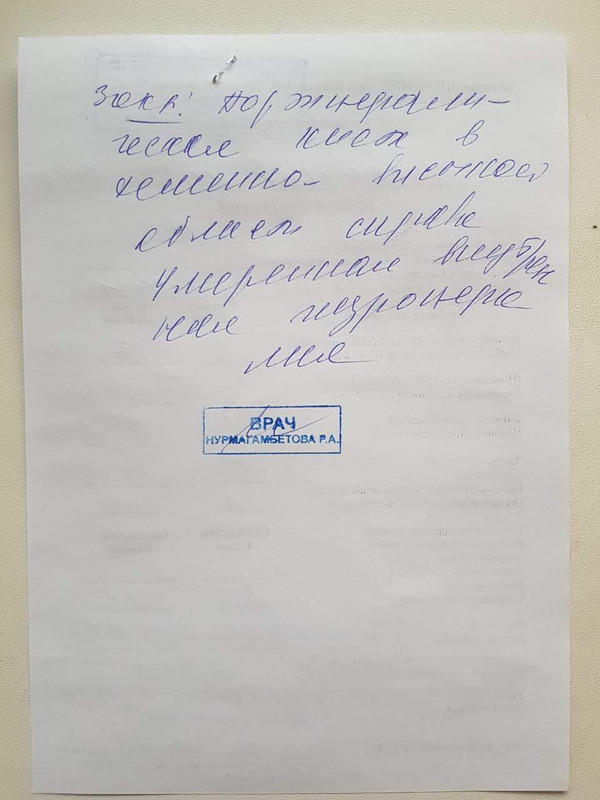 Закл: Порэнцефали-
ческая киста в
теменно-височной
области справа
Умеренная внутрен
ная гидроцефа
лия
ВРАЧ
НУРМАГАМБЕТОВА Р.А.